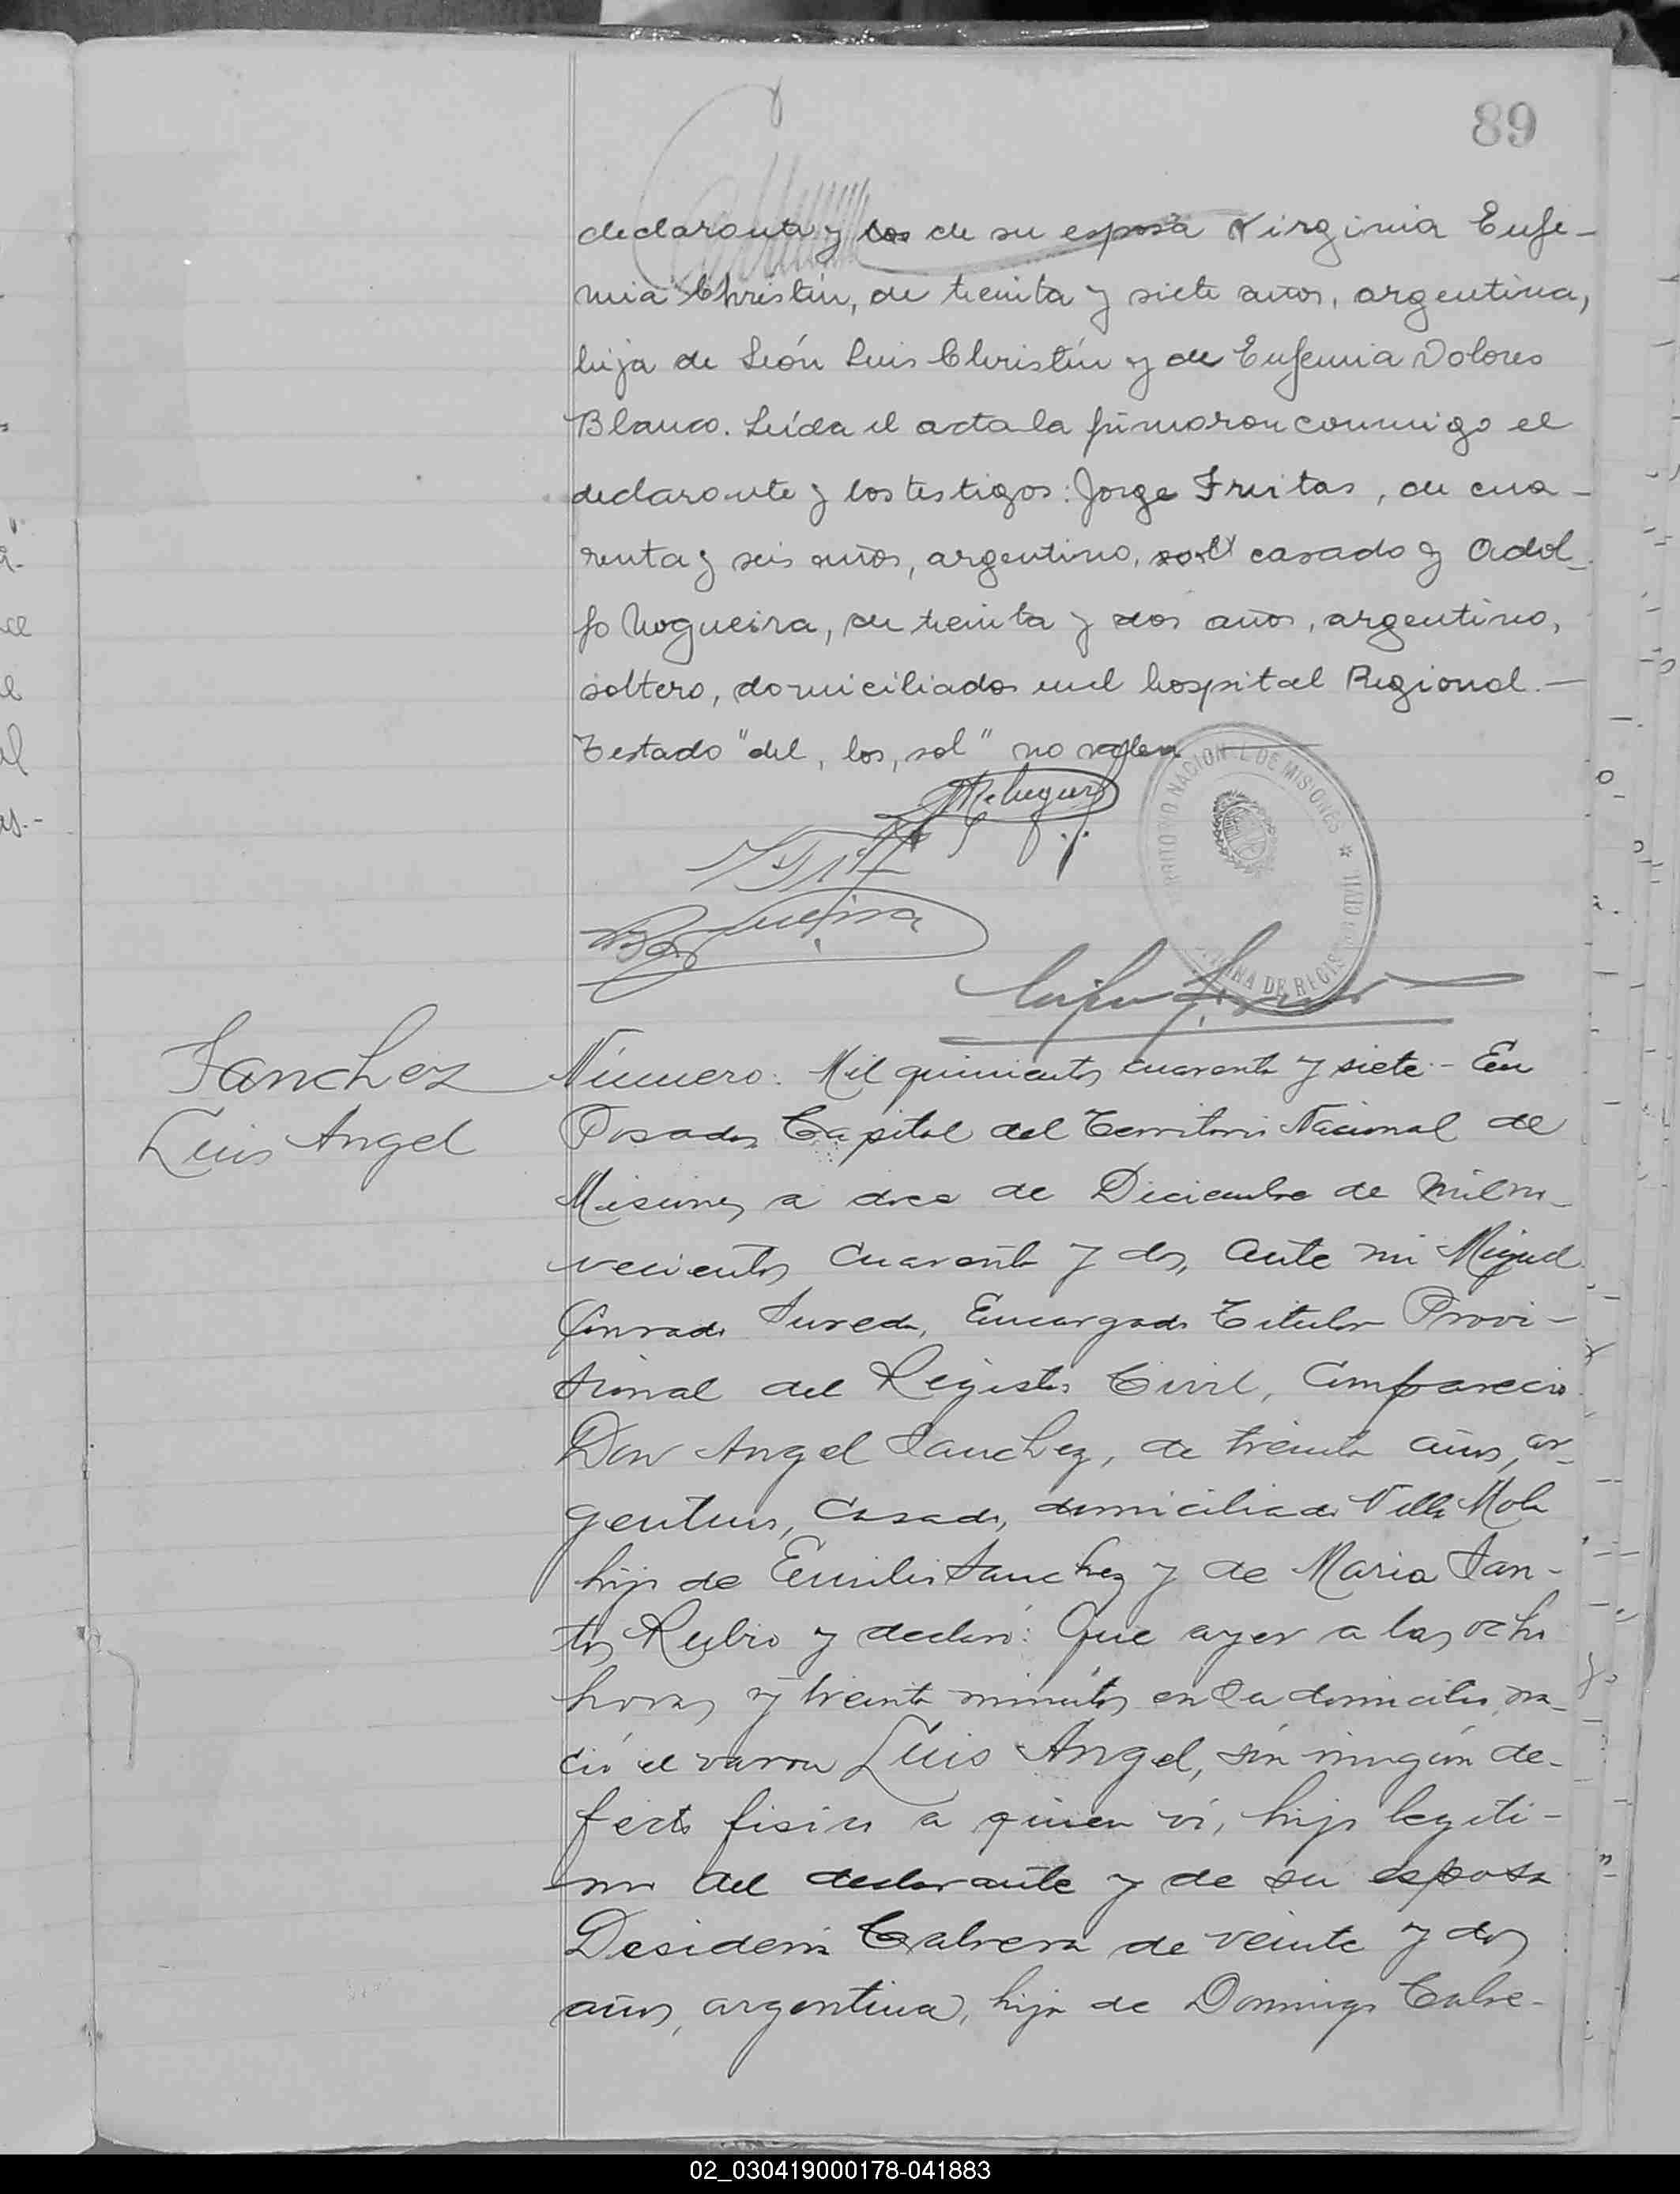 89
declarante y los de su esposa Virginia Eufe-
mia Christín, de treinta y siete años, argentina,
hija de León Luis Christín y de Eufemia Dolores
Blanco. Leída el acta la firmaron conmigo el
declarante y los testigos: Jorge Fruitas, de cua-
renta y seis años, argentino, sol casado y Adol-
fo Nogueira, de treinta y dos años, argentino,
soltero, domiciliados en el hospital Regional.—
Testado "del, los, sol" no valen
TERRITORIO NACIONAL DE MISIONES * OFICINA DE REGISTRO CIVIL
Sanchez
Luis Angel
Número: Mil quinientos cuarenta y siete - En
Posadas Capital del Territorio Nacional de
Misiones a doce de Diciembre de mil no-
vecientos cuarenta y dos, ante mi Miguel
Conrado Sureda, Encargado Titular Provi-
sional del Registro Civil, compareció
Don Angel Sanchez, de treinta años, ar-
gentino, casado, domiciliado Villa Mola
hijo de Emilio Sanchez y de Maria San-
tos Rubio y declaró: Que ayer a las ocho
horas y treinta minutos en su domicilio na-
ció el varon Luis Angel, sin ningún de-
fecto fisico a quien vi, hijo legiti-
mo del declarante y de su esposa
Desideria Cabrera de veinte y dos
años, argentina, hija de Domingo Cabre-
02_030419000178-041883